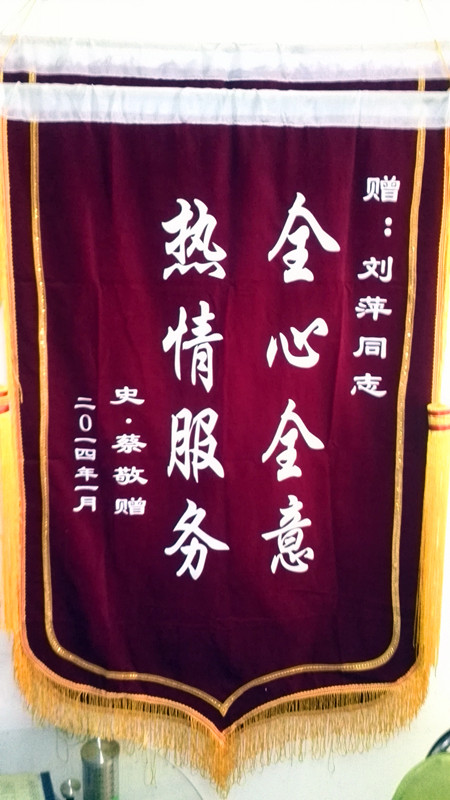 赠：刘萍同志
全心全意
热情服务
史·蔡敬赠
二0一四年一月